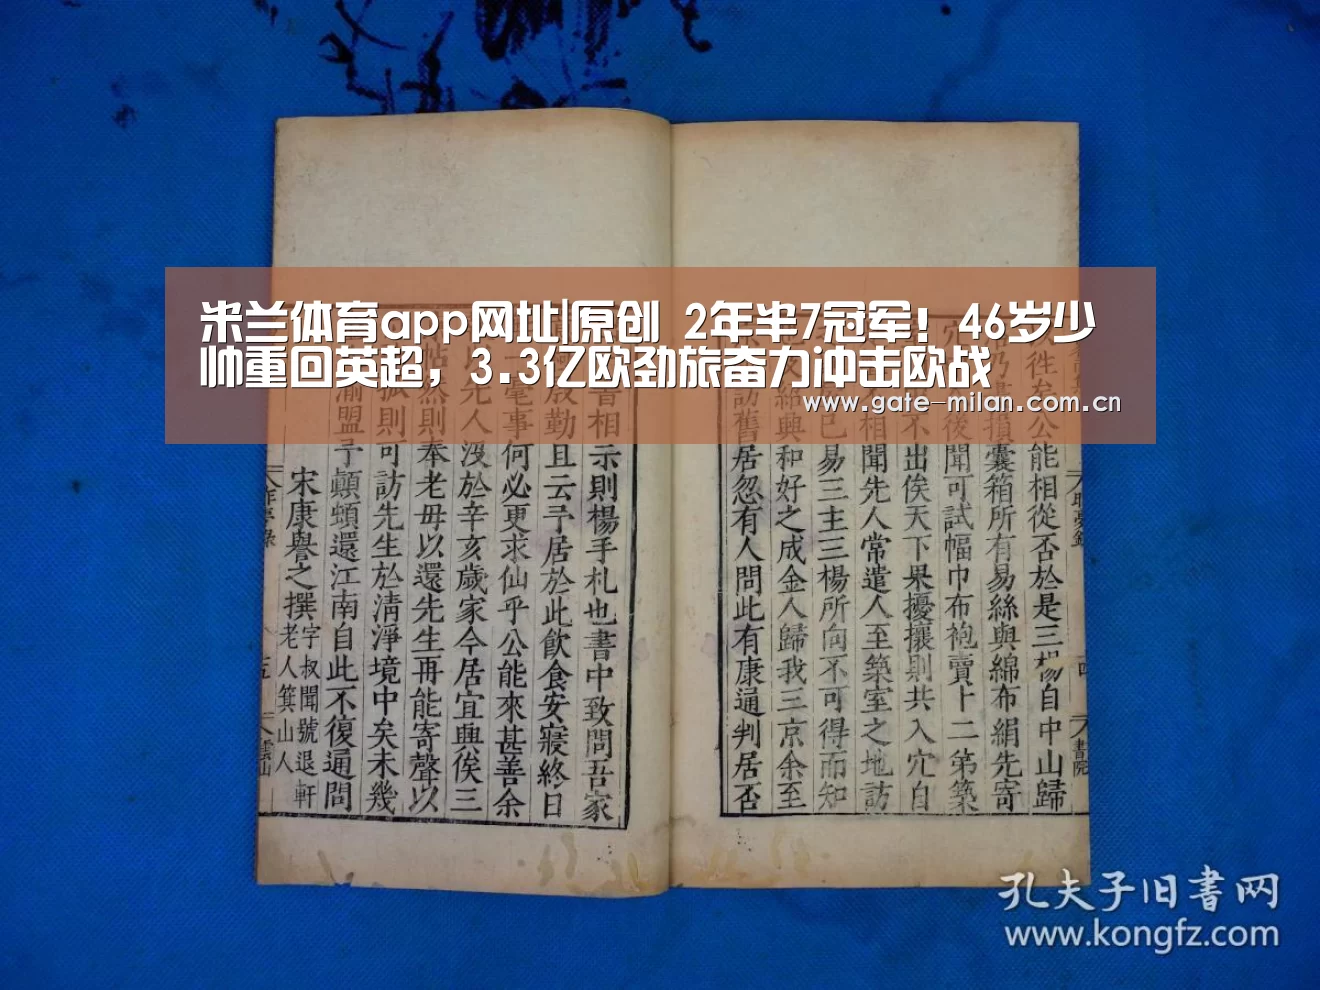 米兰体育app网址|原创 2年半7冠军！46岁少
帅重回英超，3.3亿欧劲旅奋力冲击欧战
www.gate-milan.com.cn
往矣公能相從否於是三楊自中山歸
損囊箱所有易絲與綿布絹先寄
後聞可試幅巾布袍賣卜二第築
不出俟天下果擾攘則共入穴自
相聞先人常遣人至築室之地訪
已易三主三楊所向不可得而知
紹興和好之成金人歸我三京余至
訪舊居忽有人問此有康通判居否
書相示則楊手札也書中致問吾家
殷勤且云予居於此飲食安寢終日
一毫事何必更求仙乎公能來甚善余
先人沒於辛亥歲家今居宜興俟三
帖然則奉老母以還先生再能寄聲以
孤則可訪先生於清淨境中矣未幾
渝盟予顛頓還江南自此不復通問
宋康譽之撰 字叔聞號退軒
老人箕山人
昨夢錄
四
書院
五
雲山
孔夫子旧書网
www.kongfz.com